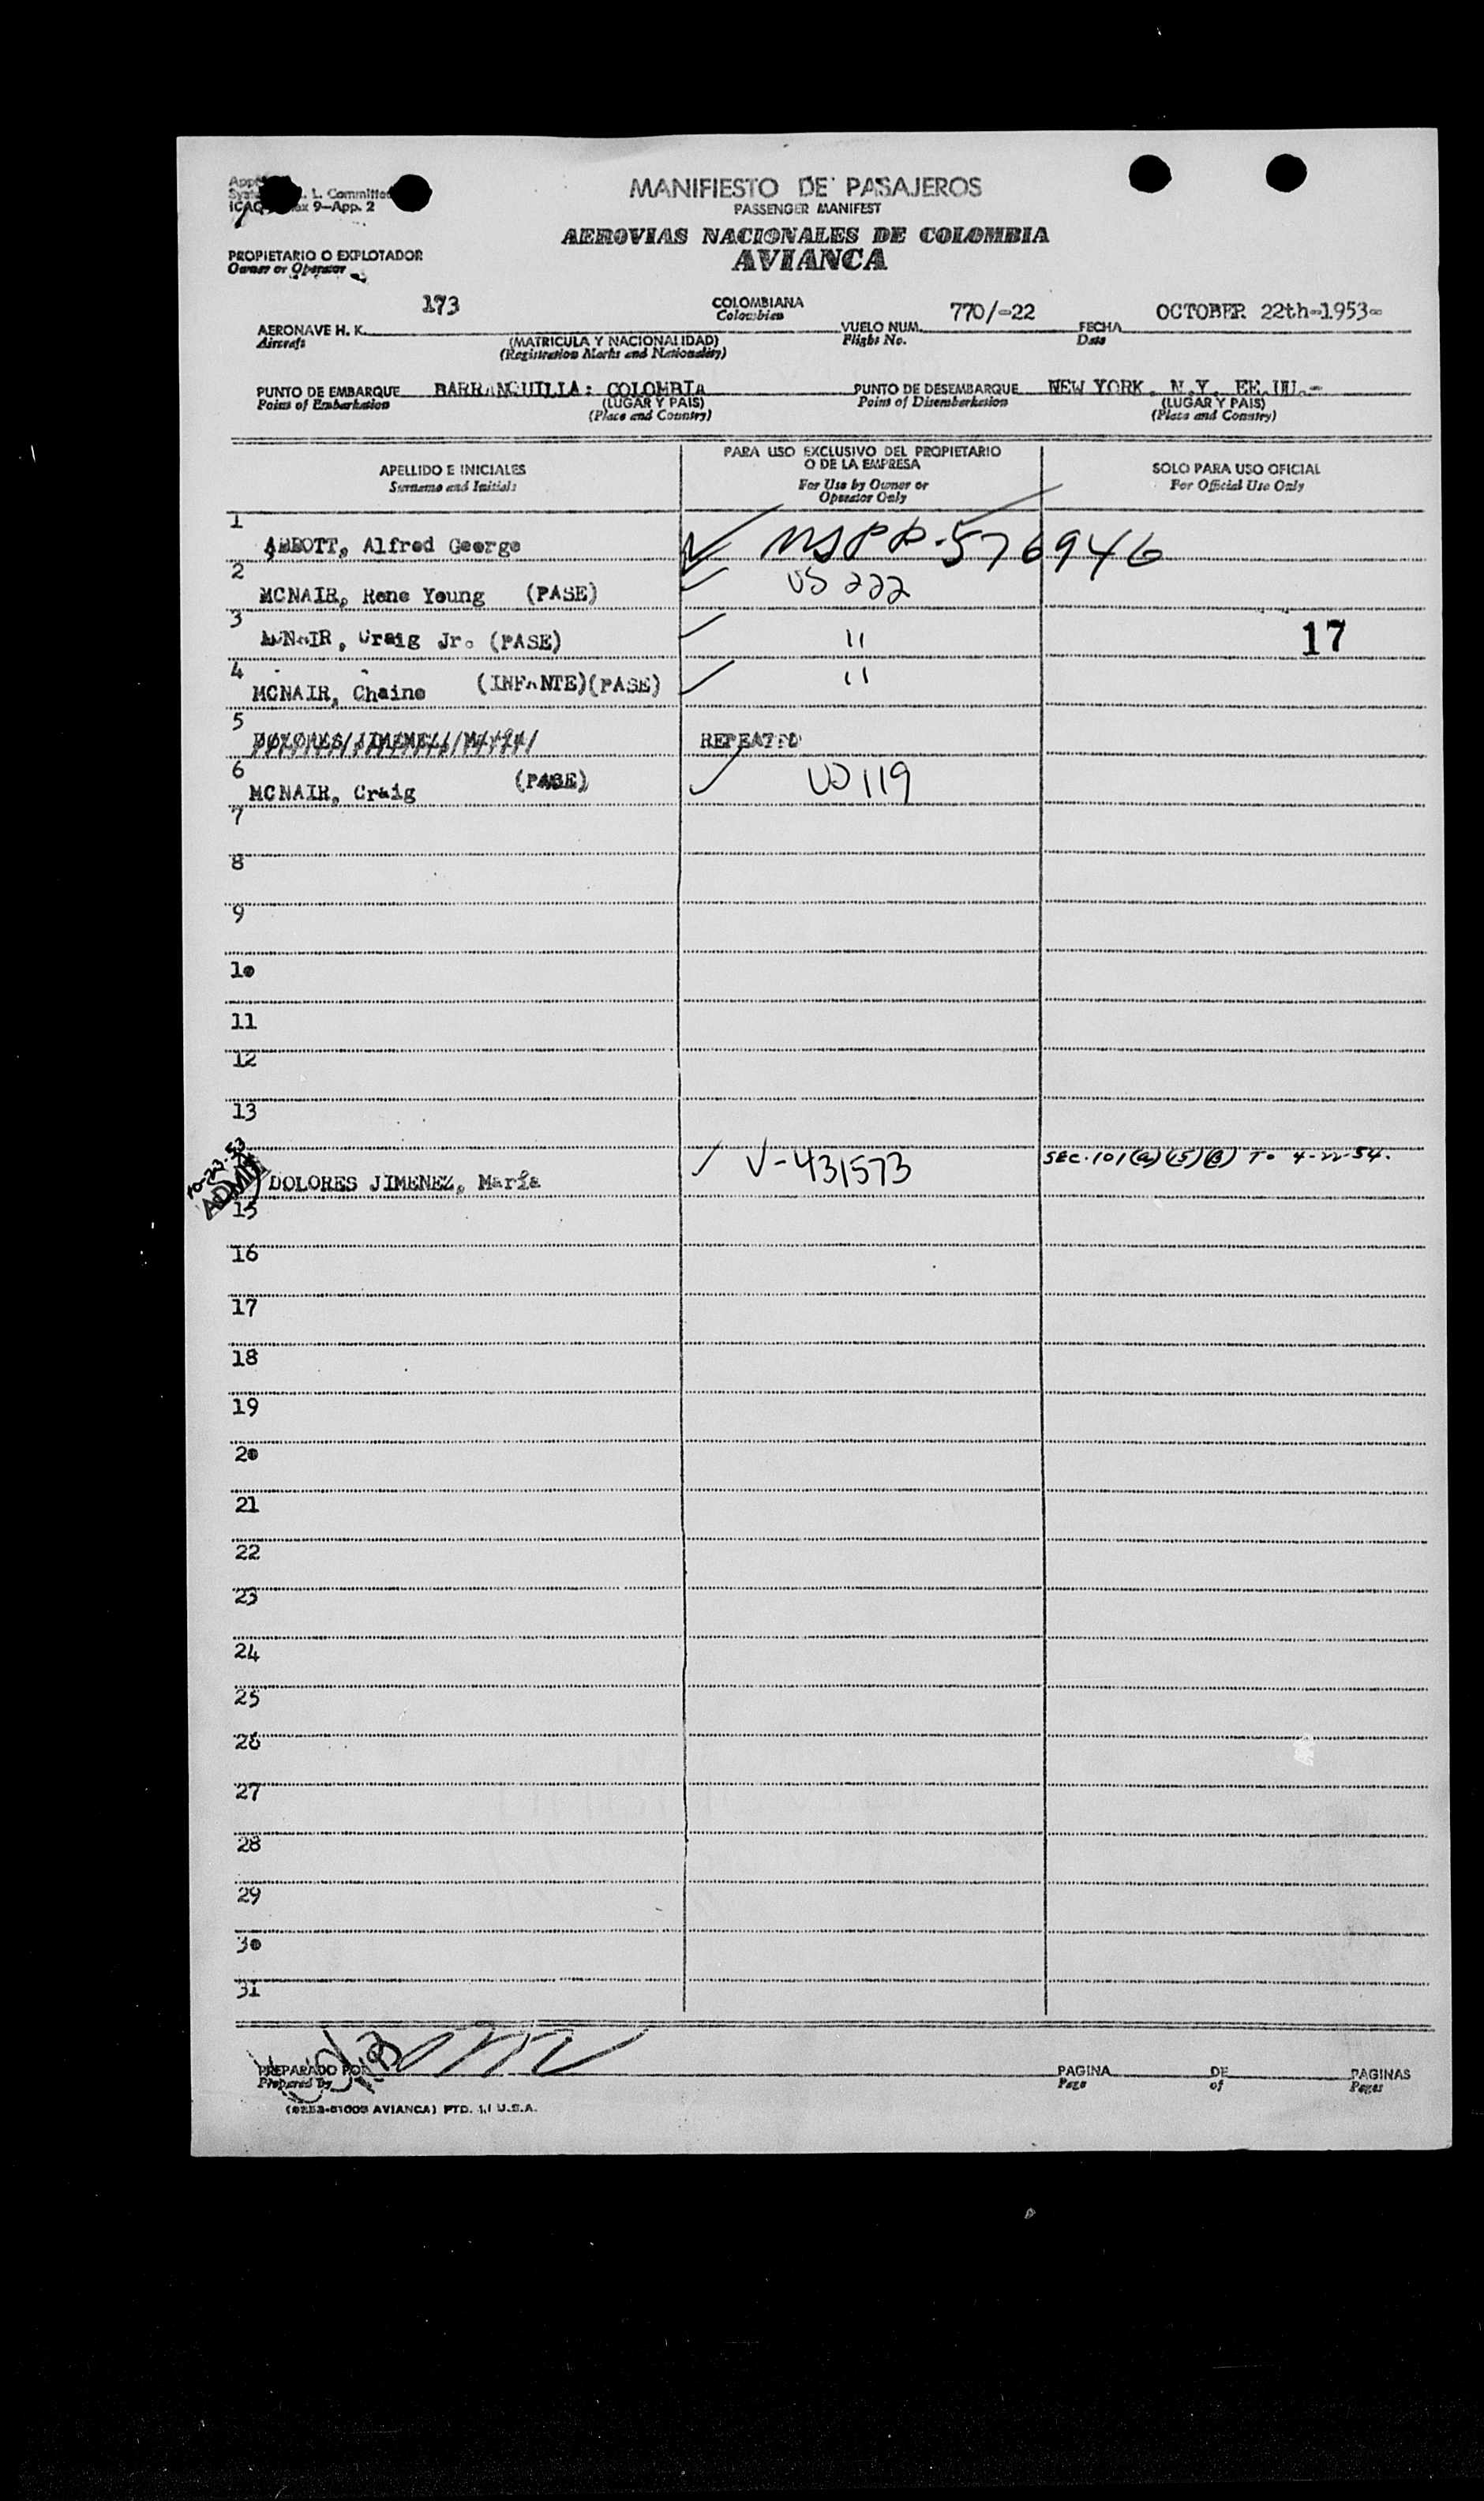 L. Committee
ICAO 9—App. 2
MANIFIESTO DE PASAJEROS
PASSENGER MANIFEST
AEROVIAS NACIONALES DE COLOMBIA
AVIANCA
PROPIETARIO O EXPLOTADOR
Owner or Operator
173 COLOMBIANA 770/-22 OCTOBER 22th-1953-
Colombian
AERONAVE H. K. VUELO NUM. FECHA
Aircraft (MATRICULA Y NACIONALIDAD) Flight No. Date
(Registration Marks and Nationality)
PUNTO DE EMBARQUE BARRANQUILLA: COLOMBIA PUNTO DE DESEMBARQUE NEW YORK, N.Y. EE.UU.-
Point of Embarkation (LUGAR Y PAIS) Point of Disembarkation (LUGAR Y PAIS)
(Place and Country) (Place and Country)
APELLIDO E INICIALES PARA USO EXCLUSIVO DEL PROPIETARIO SOLO PARA USO OFICIAL
Surname and Initials O DE LA EMPRESA For Official Use Only
For Use by Owner or
Operator Only
1
ABBOTT, Alfred George 576946
2
MCNAIR, Rene Young (PASE) US 222
3
MCNAIR, Craig Jr. (PASE) " 17
4
MCNAIR, Chaine (INFANTE)(PASE) "
5
DOLORES JIMENEZ, María REPEATED
6
MCNAIR, Craig (PASE) US 119
7
8
9
10
11
12
13
10-23-53
ADMIT
DOLORES JIMENEZ, María V-431573 SEC. 101(a)(15)(B) To 4-22-54.
15
16
17
18
19
20
21
22
23
24
25
26
27
28
29
30
31
PREPARADO POR PAGINA DE PAGINAS
Prepared By Page of Pages
AVIANCA) PTD. U.S.A.